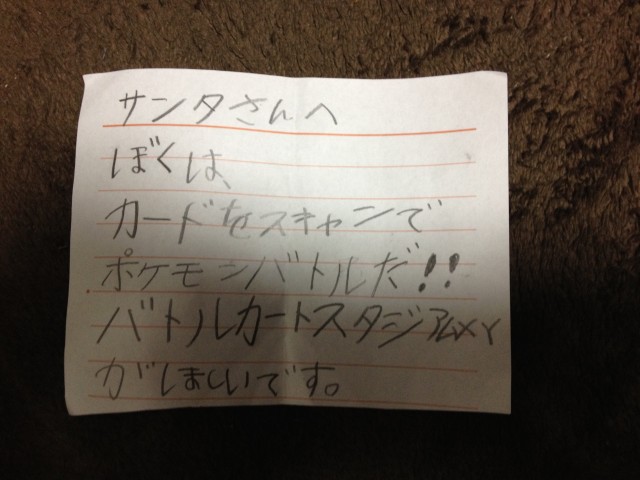 サンタさんへ
ぼくは、
カードをスキャンで
ポケモンバトルだ!!
バトルカートスタジアムXY
がほしいです。